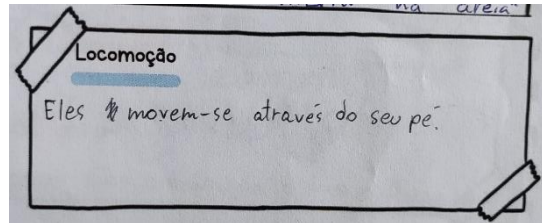 na areia
Locomoção
Eles movem-se através do seu pé.